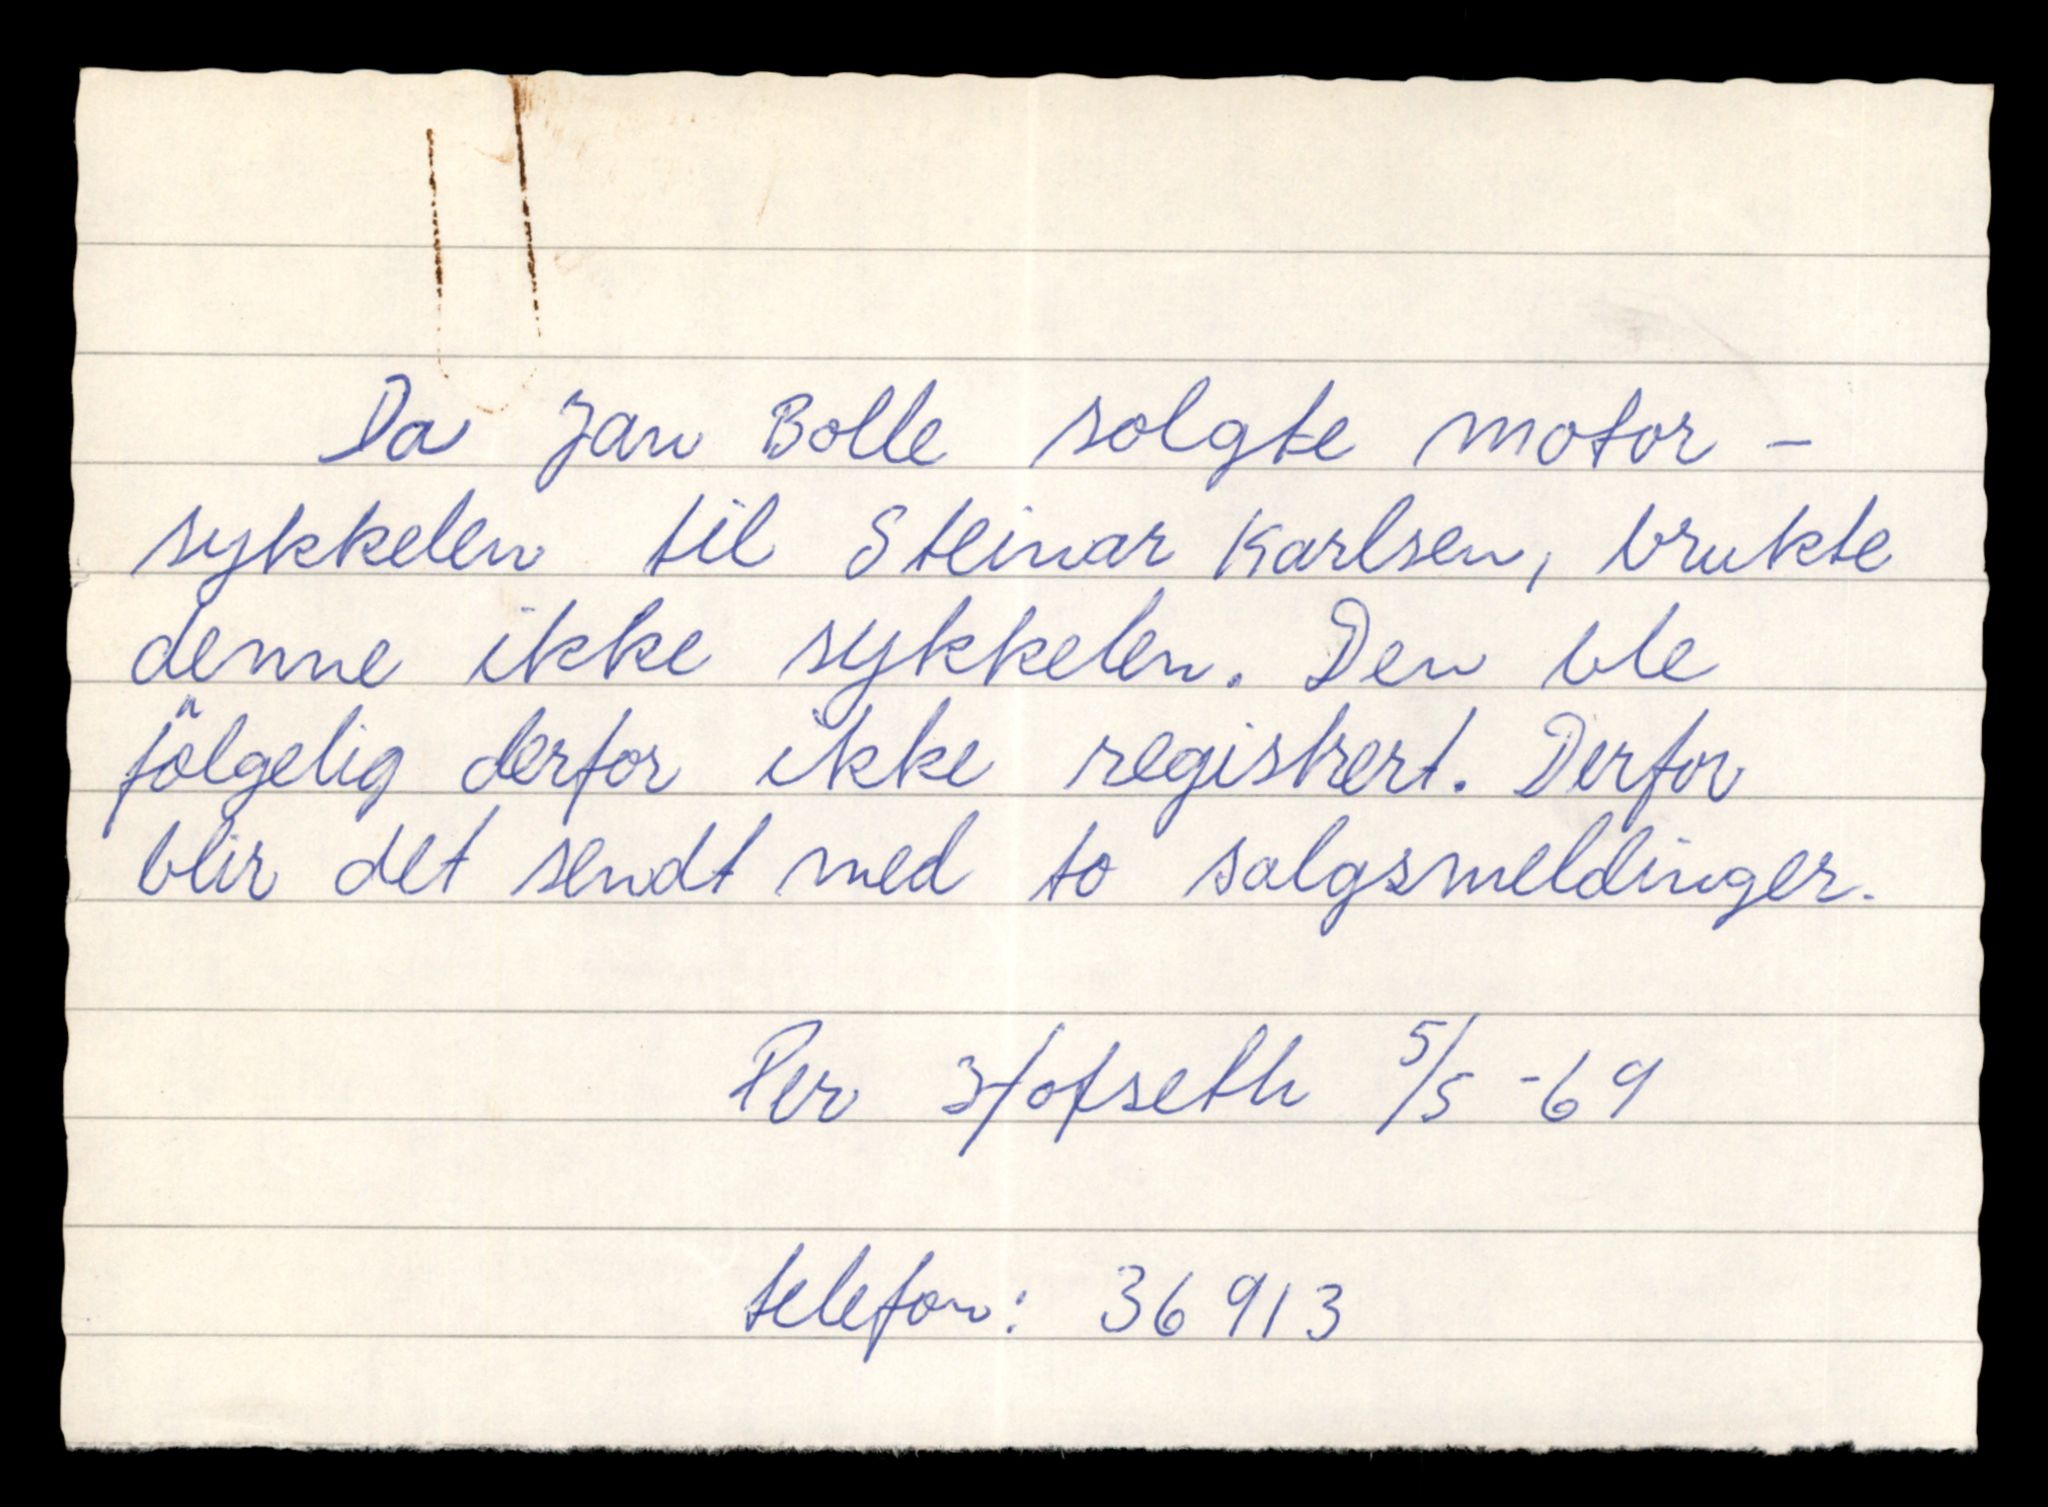 Da Jan Bolle solgte motor-
sykkelen til Steinar Karlsen, brukte
denne ikke sykkelen. Den ble
fölgelig derfor ikke registrert. Derfor
blir det sendt med to salgsmeldinger.
Per Hofseth 5/5 -69
telefon: 36913